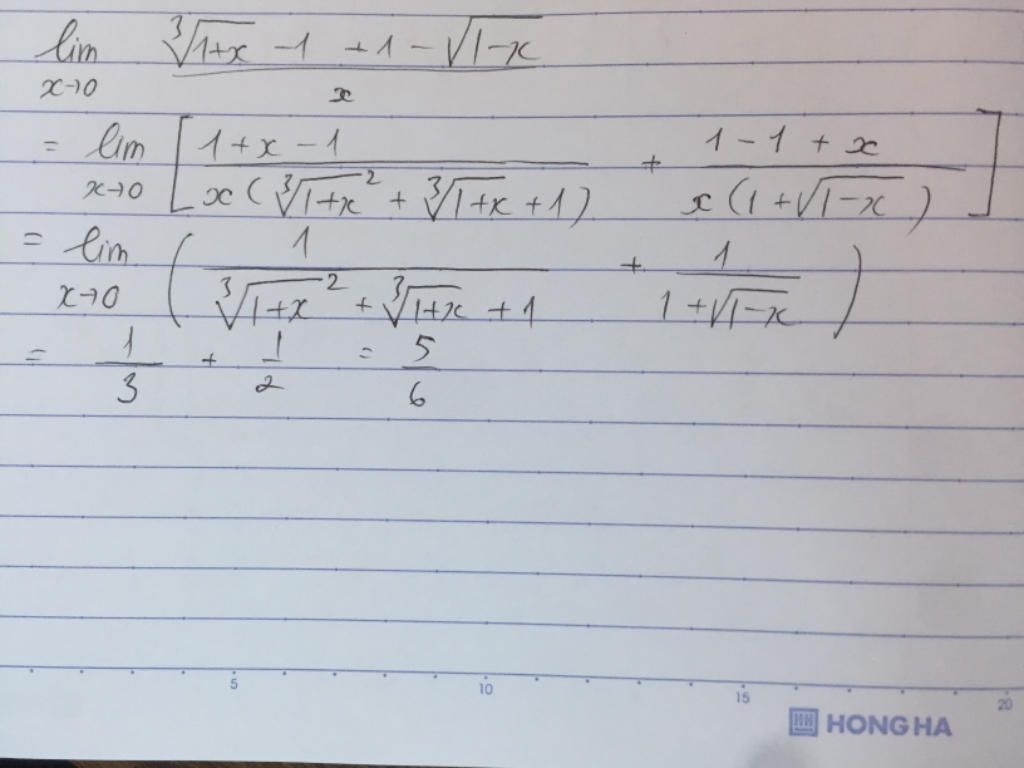 lim x→0 (∛(1+x) − 1 + 1 − √(1−x)) / x
= lim x→0 [ (1 + x − 1) / (x(∛(1+x)² + ∛(1+x) + 1)) + (1 − 1 + x) / (x(1 + √(1−x))) ]
= lim x→0 ( 1 / (∛(1+x)² + ∛(1+x) + 1) + 1 / (1 + √(1−x)) )
= 1/3 + 1/2 = 5/6
5 10 15 20
HONG HA